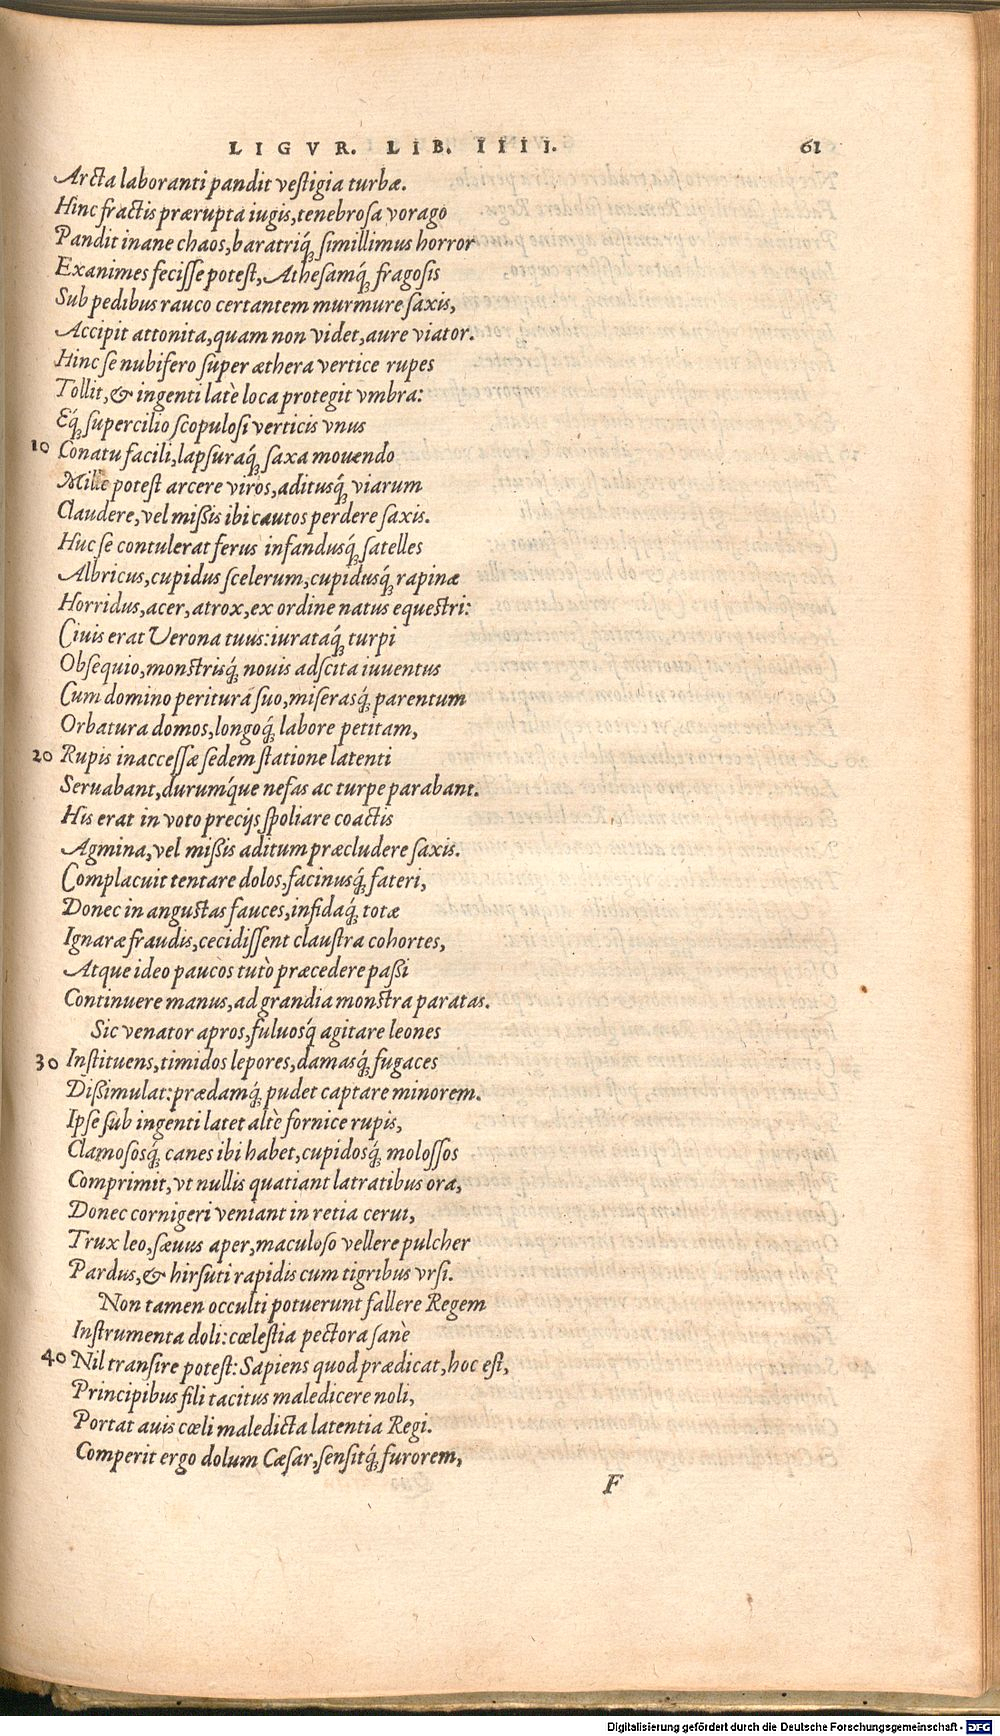 LIGVR. LIB. IIII. 61
Arcta laboranti pandit vestigia turbæ.
Hinc fractis prærupta iugis, tenebrosa vorago
Pandit inane chaos, baratriq́; simillimus horror
Exanimes fecisse potest, Athesamq́; fragosis
Sub pedibus rauco certantem murmure saxis,
Accipit attonita, quam non videt, aure viator.
Hinc se nubifero super æthera vertice rupes
Tollit, & ingenti latè loca protegit vmbra:
Eq́; supercilio scopulosi verticis vnus
10 Conatu facili, lapsuraq́; saxa mouendo
Mille potest arcere viros, aditusq́; viarum
Claudere, vel missis ibi cautos perdere saxis.
Huc se contulerat ferus infandusq́; satelles
Albricus, cupidus scelerum, cupidusq́; rapinæ
Horridus, acer, atrox, ex ordine natus equestri:
Ciuis erat Verona tuus: iurataq́; turpi
Obsequio, monstrisq́; nouis adscita iuuentus
Cum domino peritura suo, miserasq́; parentum
Orbatura domos, longoq́; labore petitam,
20 Rupis inaccessæ sedem statione latenti
Seruabant, durumq́ue nefas ac turpe parabant.
His erat in voto precijs spoliare coactis
Agmina, vel missis aditum præcludere saxis.
Complacuit tentare dolos, facinusq́; fateri,
Donec in angustas fauces, infidaq́; totæ
Ignaræ fraudis, cecidissent claustra cohortes,
Atque ideo paucos tutò præcedere passi
Continuere manus, ad grandia monstra paratas.
Sic venator apros, fuluosq́; agitare leones
30 Instituens, timidos lepores, damasq́; fugaces
Dissimulat: prædamq́; pudet captare minorem.
Ipse sub ingenti latet altè fornice rupis,
Clamososq́; canes ibi habet, cupidosq́; molossos
Comprimit, vt nullis quatiant latratibus ora,
Donec cornigeri veniant in retia cerui,
Trux leo, sæuus aper, maculoso vellere pulcher
Pardus, & hirsuti rapidis cum tigribus vrsi.
Non tamen occulti potuerunt fallere Regem
Instrumenta doli: cœlestia pectora sanè
40 Nil transire potest: Sapiens quod prædicat, hoc est,
Principibus fili tacitus maledicere noli,
Portat auis cœli maledicta latentia Regi.
Comperit ergo dolum Cæsar, sensitq́; furorem,
F
Digitalisierung gefördert durch die Deutsche Forschungsgemeinschaft - DFG